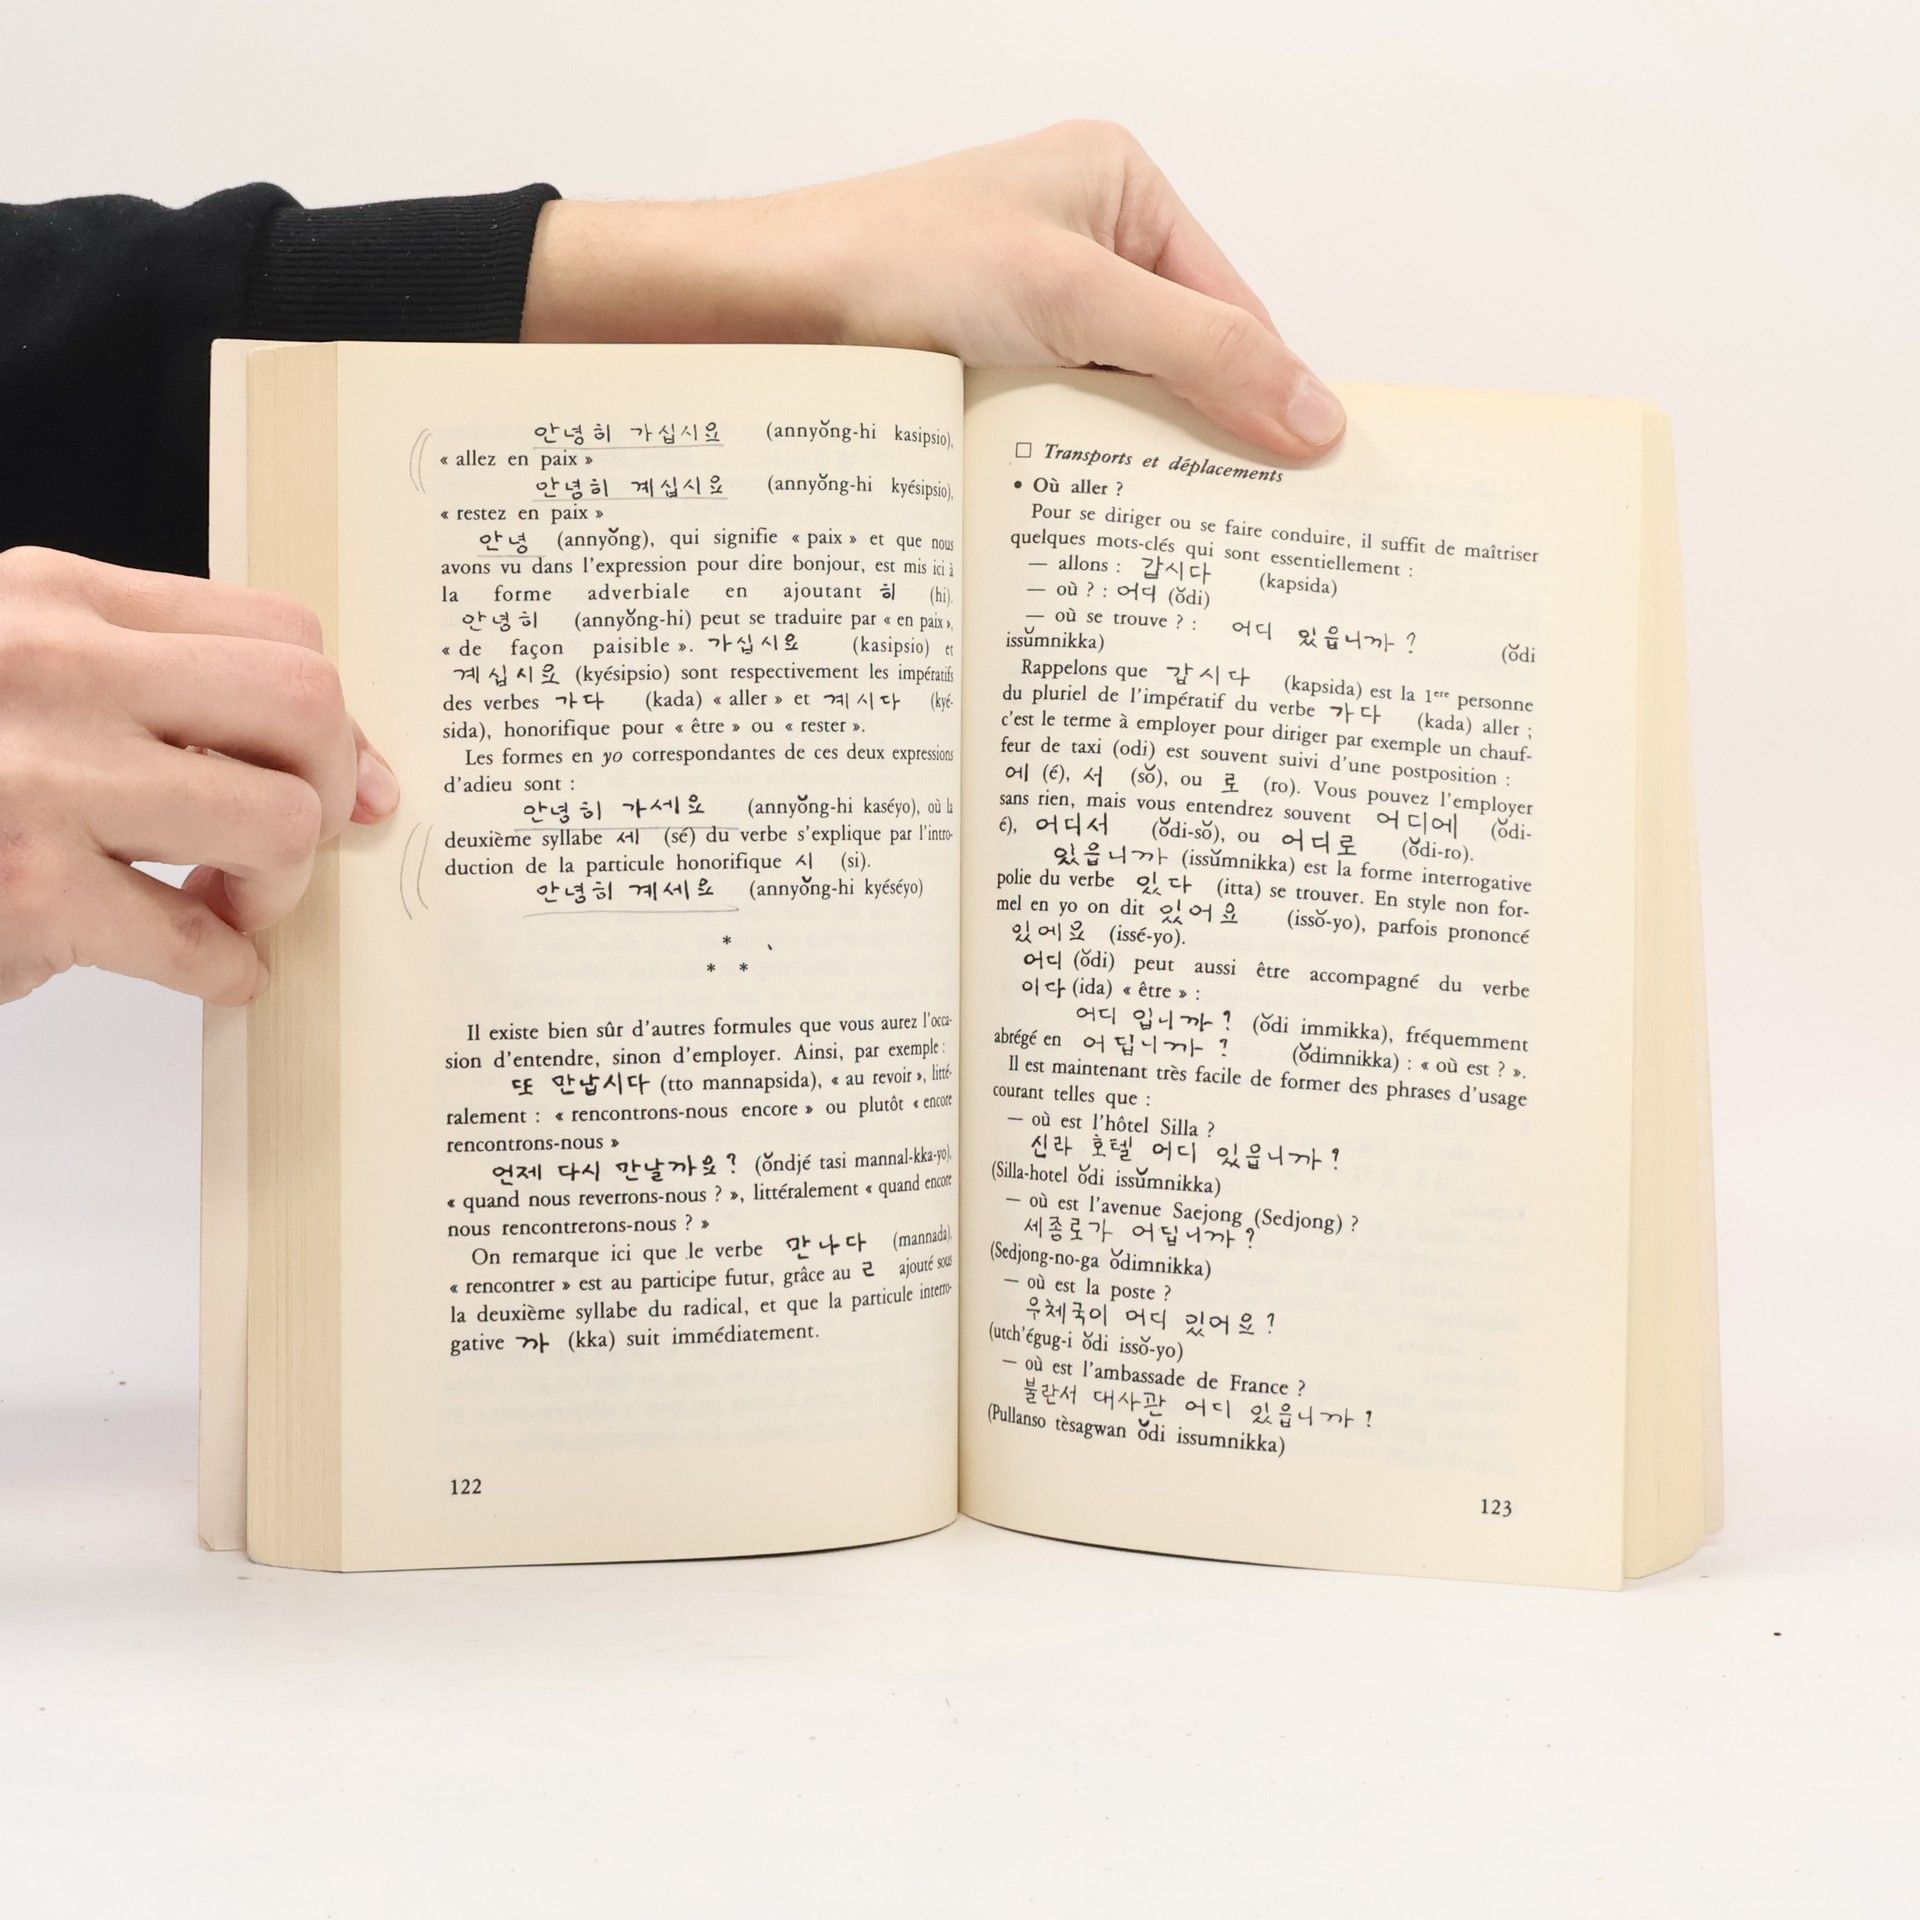 안녕히 가십시요 (annyŏng-hi kasipsio),
« allez en paix »
안녕히 계십시요 (annyŏng-hi kyésipsio),
« restez en paix »
안녕 (annyŏng), qui signifie « paix » et que nous
avons vu dans l'expression pour dire bonjour, est mis ici à
la forme adverbiale en ajoutant 히 (hi).
안녕히 (annyŏng-hi) peut se traduire par « en paix »,
« de façon paisible ». 가십시요 (kasipsio) et
계십시요 (kyésipsio) sont respectivement les impératifs
des verbes 가다 (kada) « aller » et 계시다 (kyé-
sida), honorifique pour « être » ou « rester ».
Les formes en yo correspondantes de ces deux expressions
d'adieu sont :
안녕히 가세요 (annyŏng-hi kaséyo), où la
deuxième syllabe 세 (sé) du verbe s'explique par l'intro-
duction de la particule honorifique 시 (si).
안녕히 계세요 (annyŏng-hi kyéséyo)
*
* *
Il existe bien sûr d'autres formules que vous aurez l'occa-
sion d'entendre, sinon d'employer. Ainsi, par exemple :
또 만납시다 (tto mannapsida), « au revoir », litté-
ralement : « rencontrons-nous encore » ou plutôt « encore
rencontrons-nous »
언제 다시 만날까요? (ŏndjé tasi mannal-kka-yo),
« quand nous reverrons-nous ? », littéralement « quand encore
nous rencontrerons-nous ? »
On remarque ici que le verbe 만나다 (mannada),
« rencontrer » est au participe futur, grâce au ㄹ ajouté sous
la deuxième syllabe du radical, et que la particule interro-
gative 까 (kka) suit immédiatement.
122
□ Transports et déplacements
• Où aller ?
Pour se diriger ou se faire conduire, il suffit de maîtriser
quelques mots-clés qui sont essentiellement :
— allons : 갑시다 (kapsida)
— où ? : 어디 (ŏdi)
— où se trouve ? : 어디 있읍니까? (ŏdi
issŭmnikka)
Rappelons que 갑시다 (kapsida) est la 1ere personne
du pluriel de l'impératif du verbe 가다 (kada) aller ;
c'est le terme à employer pour diriger par exemple un chauf-
feur de taxi (odi) est souvent suivi d'une postposition :
에 (é), 서 (sŏ), ou 로 (ro). Vous pouvez l'employer
sans rien, mais vous entendrez souvent 어디에 (ŏdi-
é), 어디서 (ŏdi-sŏ), ou 어디로 (ŏdi-ro).
있읍니까 (issŭmnikka) est la forme interrogative
polie du verbe 있다 (itta) se trouver. En style non for-
mel en yo on dit 있어요 (issŏ-yo), parfois prononcé
있에요 (issé-yo).
어디 (ŏdi) peut aussi être accompagné du verbe
이다 (ida) « être » :
어디 입니까? (ŏdi immikka), fréquemment
abrégé en 어딥니까? (ŏdimnikka) : « où est ? ».
Il est maintenant très facile de former des phrases d'usage
courant telles que :
— où est l'hôtel Silla ?
신라 호텔 어디 있읍니까?
(Silla-hotel ŏdi issŭmnikka)
— où est l'avenue Saejong (Sedjong) ?
세종로가 어딥니까?
(Sedjong-no-ga ŏdimnikka)
— où est la poste ?
우체국이 어디 있어요?
(utch'égug-i ŏdi issŏ-yo)
— où est l'ambassade de France ?
불란서 대사관 어디 있읍니까?
(Pullanso tèsagwan ŏdi issumnikka)
123